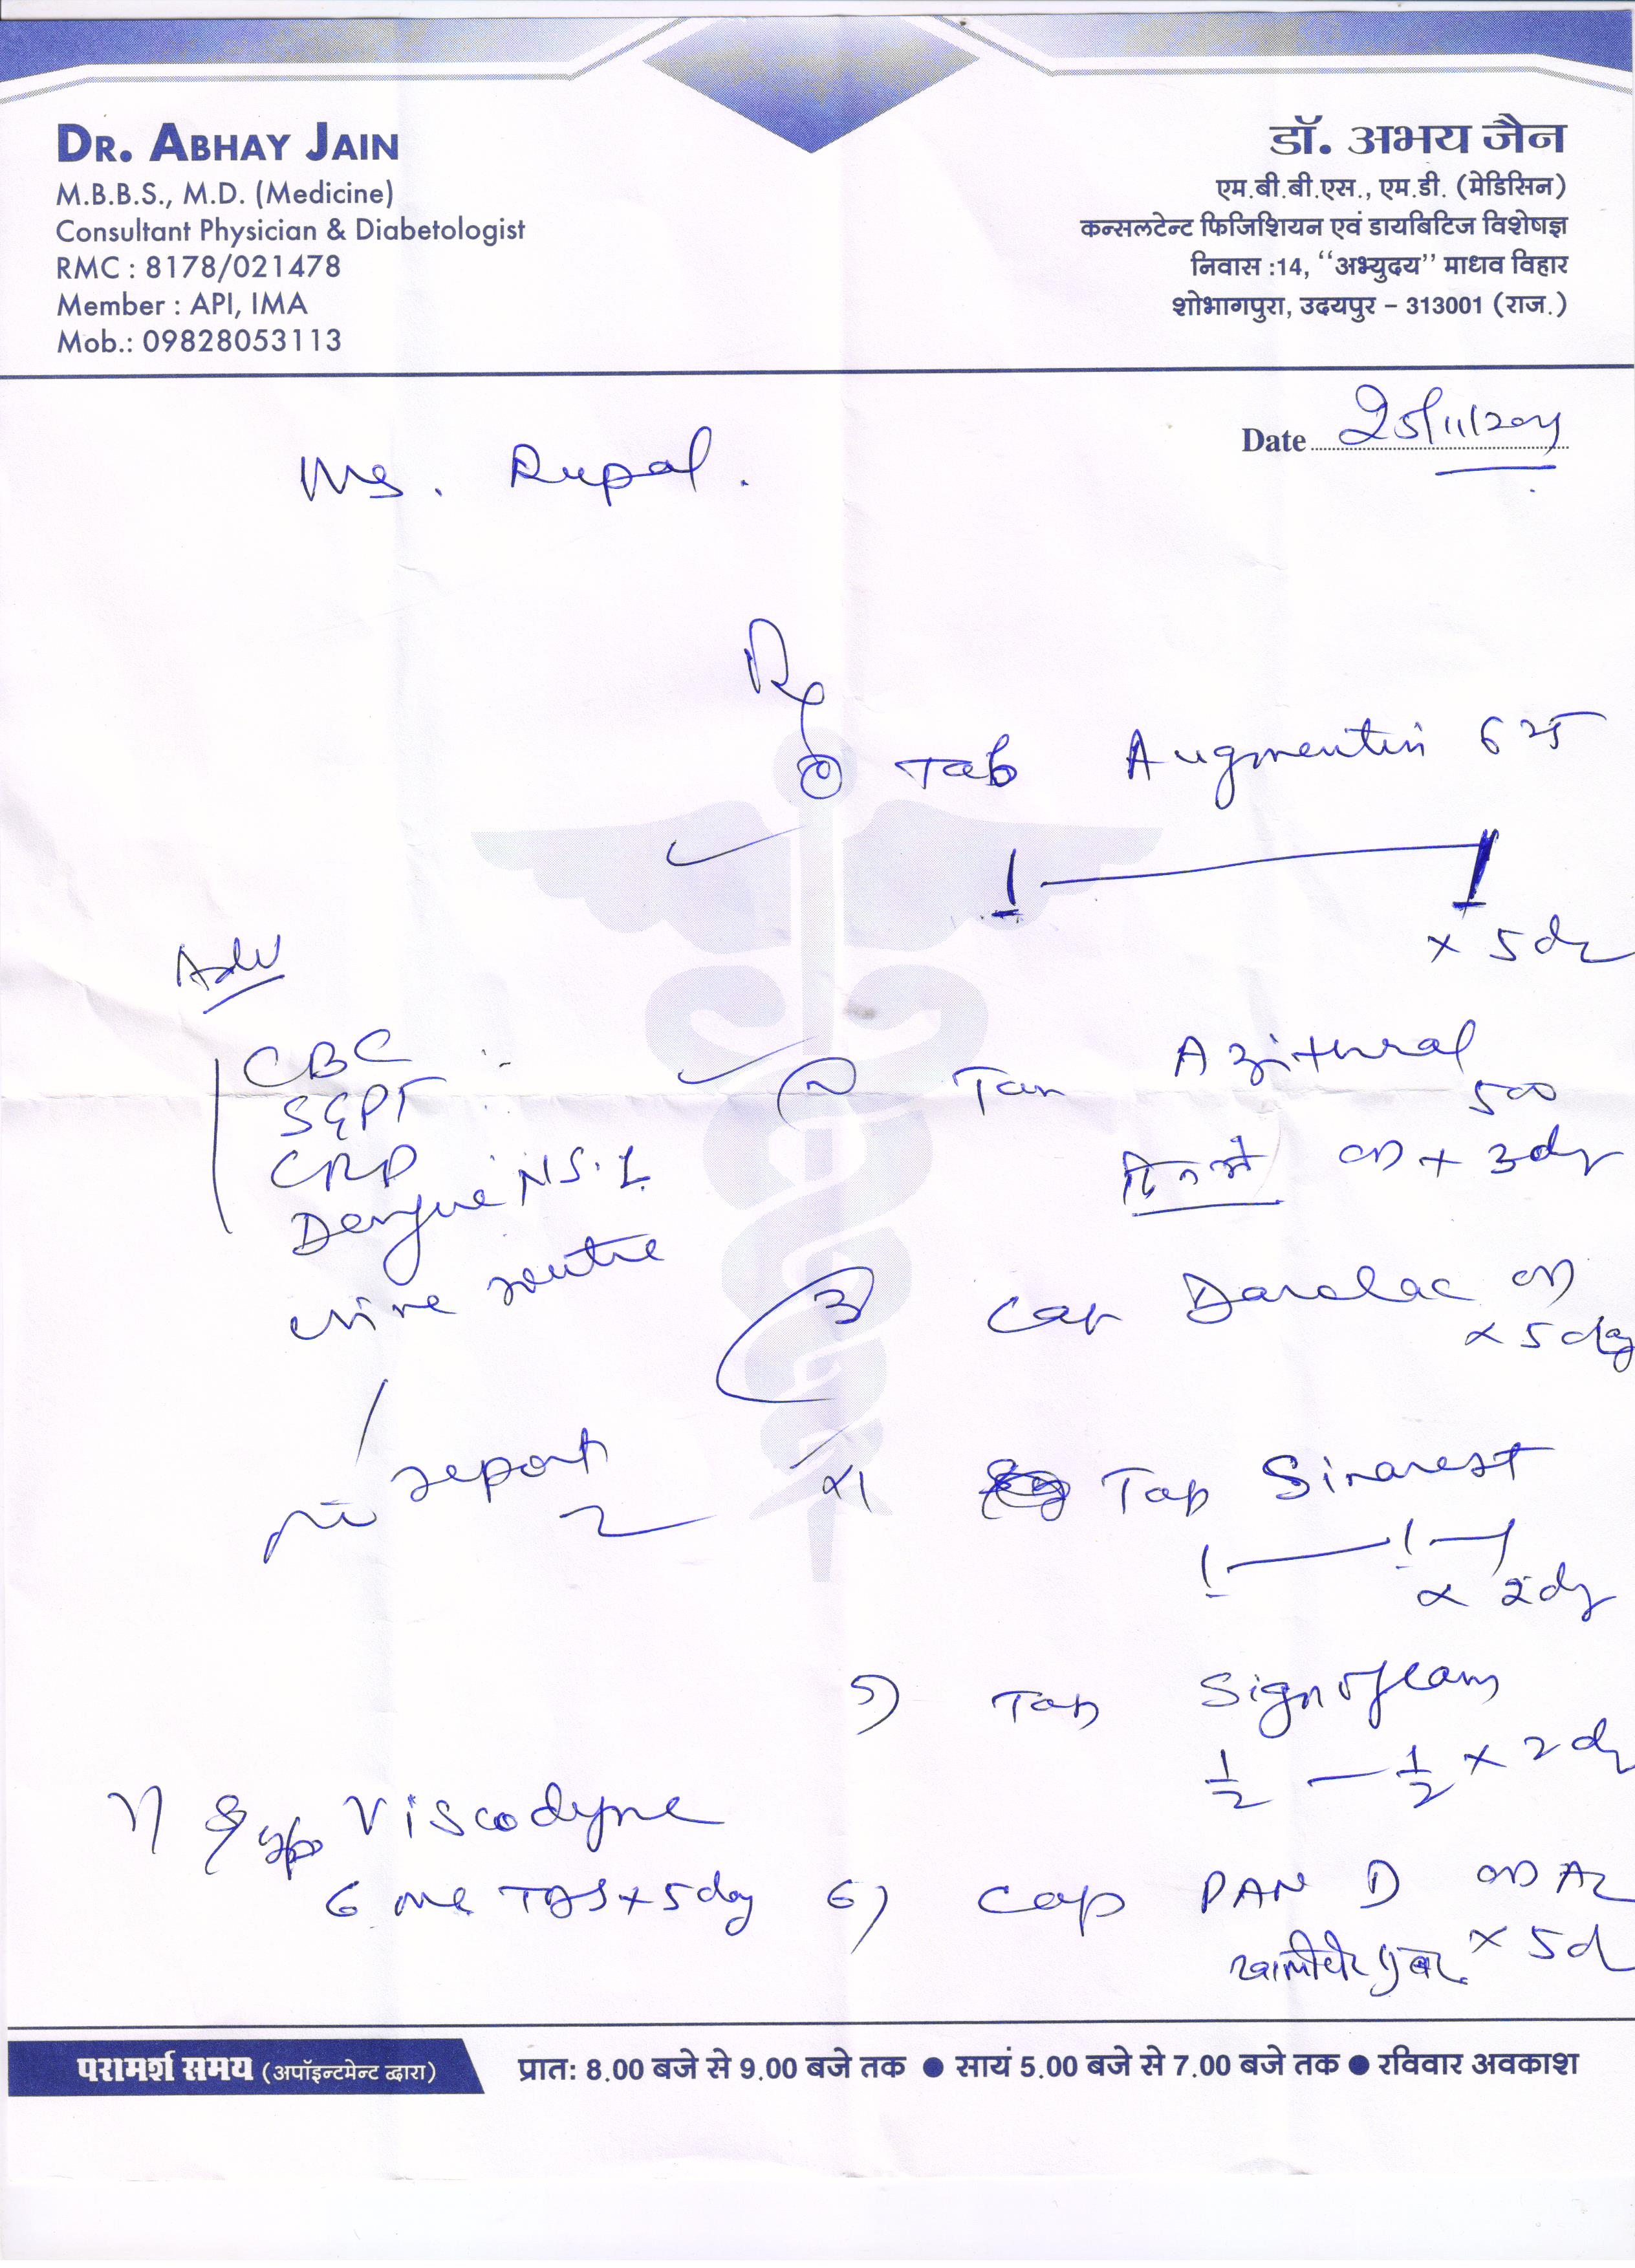 DR. ABHAY JAIN
M.B.B.S., M.D. (Medicine)
Consultant Physician & Diabetologist
RMC : 8178/021478
Member : API, IMA
Mob.: 09828053113
डॉ. अभय जैन
एम.बी.बी.एस., एम.डी. (मेडिसिन)
कन्सलटेन्ट फिजिशियन एवं डायबिटिज विशेषज्ञ
निवास :14, ‘‘अभ्युदय’’ माधव विहार
शोभागपुरा, उदयपुर – 313001 (राज.)
Date 25/11/
Ms. Rupal.
Rx
Tab Augmentin 625
1 — 1
x 5 d
Adv
CBC
SGPT
CRP
Dengue NS.1
urine routine
report
2 Azithral
500
OD x 3 dy
3 Cap Darolac OD
x 5 day
Tab Sinarest
1 — 1 —
x 2 dy
5) Tab Signoflam
1/2 — 1/2 x 2 d
6) Cap PAN D OD
खाली पेट x 5 d
7) Syp Viscodyne
6 ml TDS x 5 day
परामर्श समय (अपॉइन्टमेन्ट द्वारा) प्रात: 8.00 बजे से 9.00 बजे तक ● सायं 5.00 बजे से 7.00 बजे तक ● रविवार अवकाश